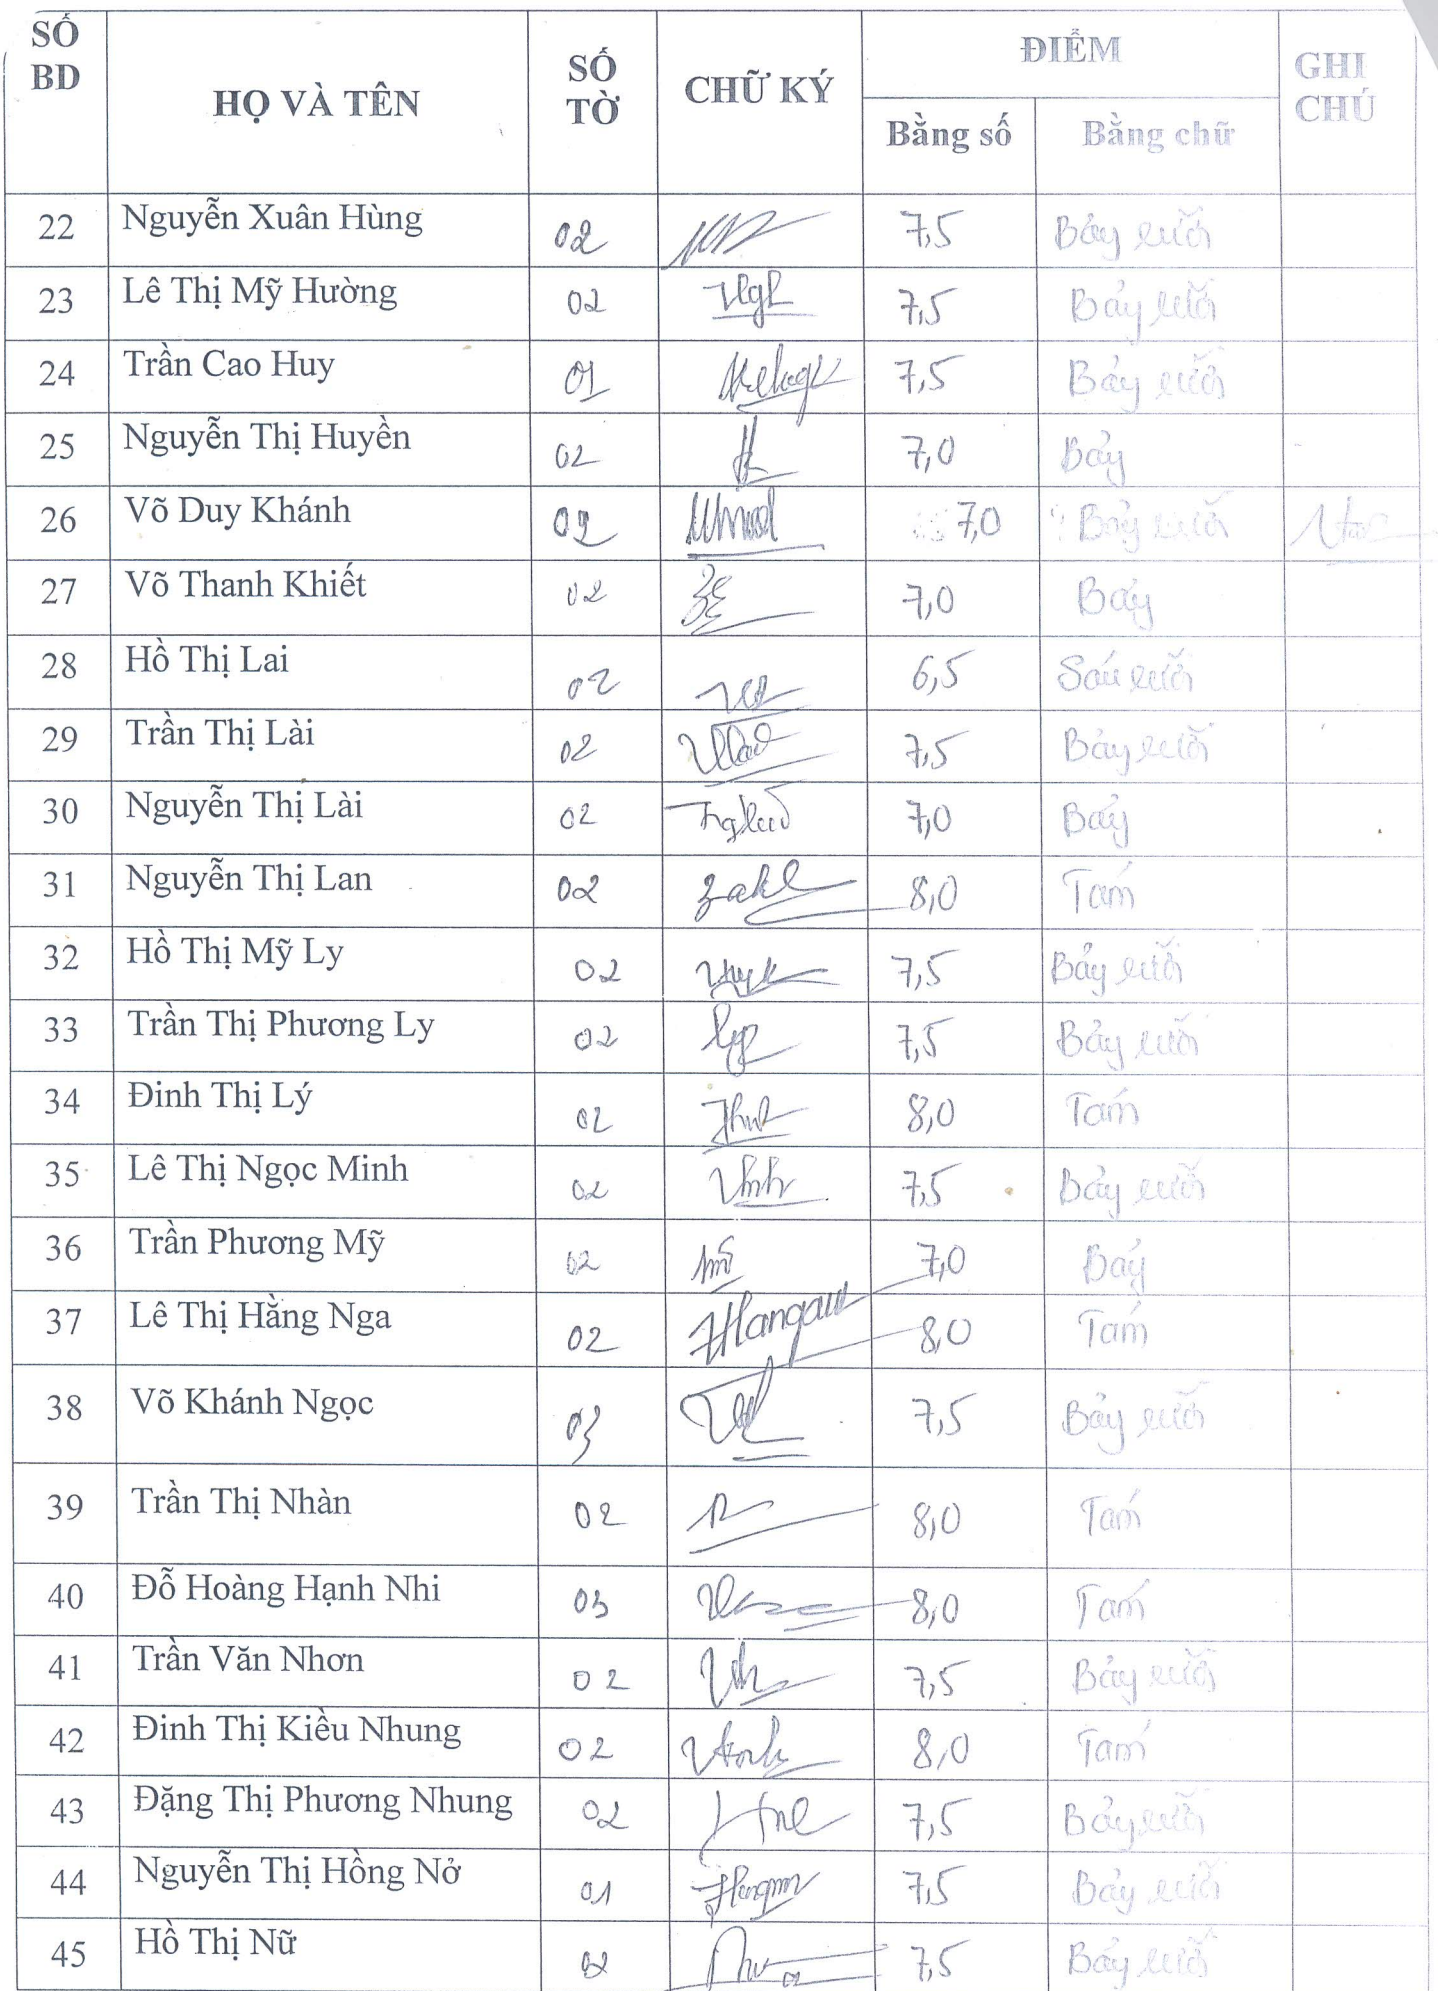 SỐ BD HỌ VÀ TÊN SỐ TỜ CHỮ KÝ ĐIỂM GHI CHÚ
Bằng số Bằng chữ
22 Nguyễn Xuân Hùng 02 7,5 Bảy rưỡi
23 Lê Thị Mỹ Hường 02 7,5 Bảy rưỡi
24 Trần Cao Huy 01 7,5 Bảy rưỡi
25 Nguyễn Thị Huyền 02 7,0 Bảy
26 Võ Duy Khánh 02 7,0 Bảy rưỡi
27 Võ Thanh Khiết 02 7,0 Bảy
28 Hồ Thị Lai 02 6,5 Sáu rưỡi
29 Trần Thị Lài 02 7,5 Bảy rưỡi
30 Nguyễn Thị Lài 02 7,0 Bảy
31 Nguyễn Thị Lan 02 8,0 Tám
32 Hồ Thị Mỹ Ly 02 7,5 Bảy rưỡi
33 Trần Thị Phương Ly 02 7,5 Bảy rưỡi
34 Đinh Thị Lý 02 8,0 Tám
35 Lê Thị Ngọc Minh 02 7,5 Bảy rưỡi
36 Trần Phương Mỹ 02 7,0 Bảy
37 Lê Thị Hằng Nga 02 8,0 Tám
38 Võ Khánh Ngọc 03 7,5 Bảy rưỡi
39 Trần Thị Nhàn 02 8,0 Tám
40 Đỗ Hoàng Hạnh Nhi 03 8,0 Tám
41 Trần Văn Nhơn 02 7,5 Bảy rưỡi
42 Đinh Thị Kiều Nhung 02 8,0 Tám
43 Đặng Thị Phương Nhung 02 7,5 Bảy rưỡi
44 Nguyễn Thị Hồng Nở 01 7,5 Bảy rưỡi
45 Hồ Thị Nữ 02 7,5 Bảy rưỡi